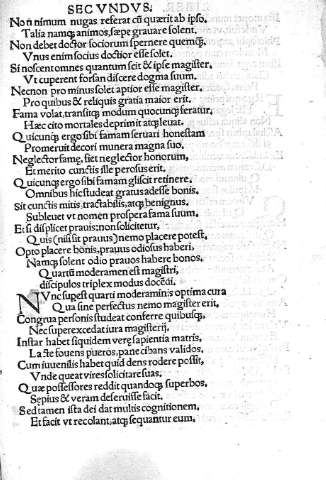 SECVNDVS.
Non nimium nugas referat cū quærit ab ipso,
Talia namq; animos, sæpe grauare solent.
Non debet doctor sociorum spernere quemq;.
Vnus enim socius doctior esse solet.
Si noscent omnes quantum scit & ipse magister,
Vt cuperent forsan discere dogma suum.
Necnon pro minus solet aptior esse magister,
Pro quibus & reliquis gratia maior erit.
Fama volat, transitq; modum quocunq; feratur,
Hæc cito mortales deprimit atq; leuat.
Quicunq; ergo sibi famam seruari honestam
Promeruit decori munera magna suo.
Neglector famę, fiet neglector honorum,
Et merito cunctis ille perosus erit.
Quicunq; ergo sibi famam gliscit retinere,
Omnibus hic studeat gratus adesse bonis.
Sit cunctis mitis, tractabilis, atq; benignus.
Subleuet vt nomen prospera fama suum.
Et si displicet prauis: non solicitetur,
Quis (nisi sit prauus) nemo placere potest.
Opto placere bonis, prauus odiosus haberi,
Namq; solent odio prauos habere bonos.
Quartū moderamen est magistri,
discipulos triplex modus docēdi.
NVnc supest quarti moderaminis optima cura
Qua sine perfectus nemo magister erit,
Congrua personis studeat conferre quibusq;.
Nec superexcedat iura magisterij.
Instar habet siquidem verę sapientia matris,
Lacte fouens pueros, pane cibans validos.
Cum iuuenilis habet quid dens rodere possit,
Vnde queat vires solicitare suas.
Quæ possessores reddit quandoq; superbos,
Sępius & veram deseruisse facit.
Sed tamen ista dei dat multis cognitionem,
Et facit vt recolant, atq; sequantur eum.